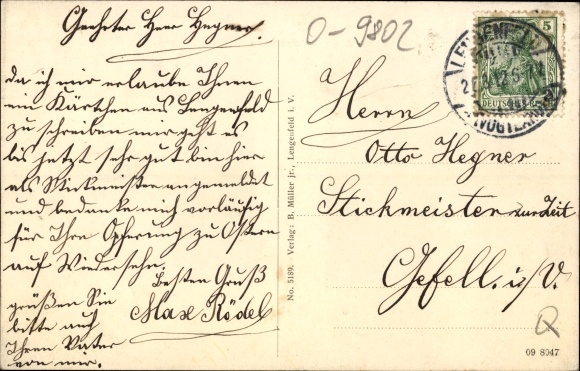 Geehrter Herr Hegner.
Da ich mir erlaube Ihnen
ein Kärtchen aus Lengenfeld
zu schreiben mir geht es
bis jetzt sehr gut bin hier
als Stickmeister angemeldet
und bedanke mich vorläufig
für Ihre Opferung zu Ostern
auf Wiedersehn.
Besten Gruß
Max Rödel
grüßen Sie
bitte auch
Ihren Vater
von mir.
No. 5189. Verlag: B. Müller jr., Lengenfeld i. V.
O-9802
5
LENGENFELD
(VOGTLAND)
Herrn
Otto Hegner
Stickmeister zur Zeit
Gefell. i/V.
Q
09 8947